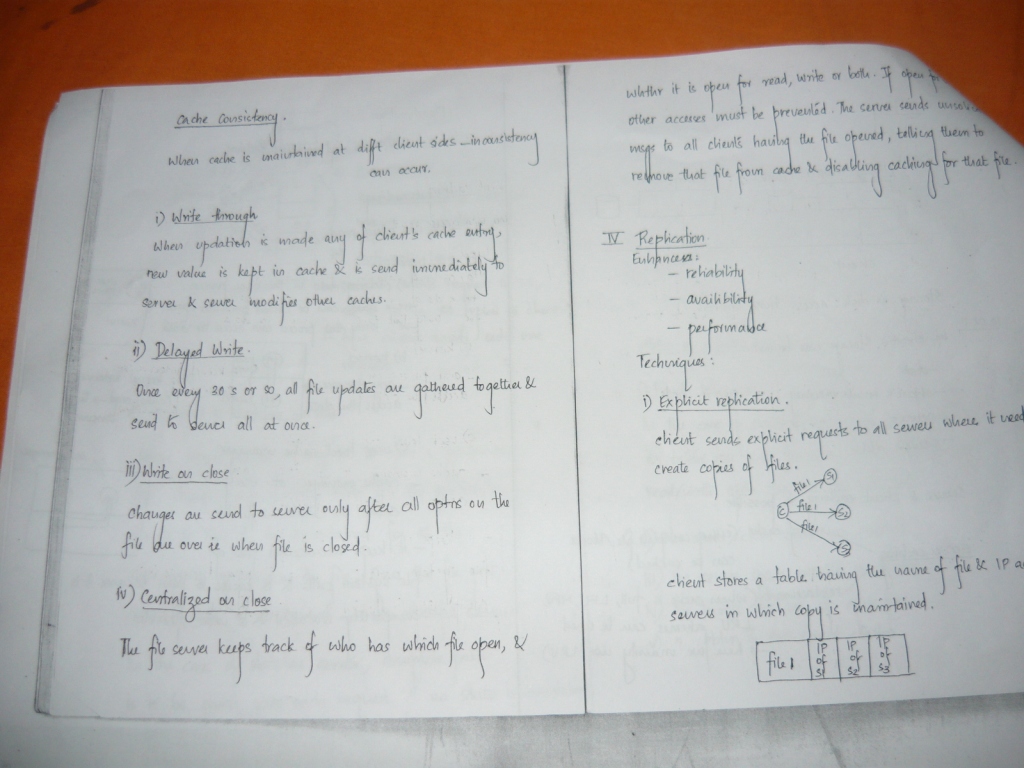 Cache Consistency.
When cache is maintained at difft client sides - inconsistency
can occur.
i) Write through
When updation is made any of client's cache entry,
new value is kept in cache & is send immediately to
server & server modifies other caches.
ii) Delayed Write.
Once every 30 s or so, all file updates are gathered together &
send to server all at once.
iii) Write on close
Changes are send to server only after all optns on the
file are over ie when file is closed.
iv) Centralized on close
The file server keeps track of who has which file open, &
whethr it is open for read, write or both. If open for
other accesses must be prevented. The server sends
msgs to all clients having the file opened, telling them to
remove that file from cache & disabling caching for that file.
IV Replication
Enhances:
- reliability
- availibility
- performance
Techniques:
i) Explicit replication.
client sends explicit requests to all servers where it need
create copies of files.
file1 S1
C file1 S2
file1 S3
client stores a table having the name of file & IP
servers in which copy is maintained.
file1 IP of S1 IP of S2 IP of S3